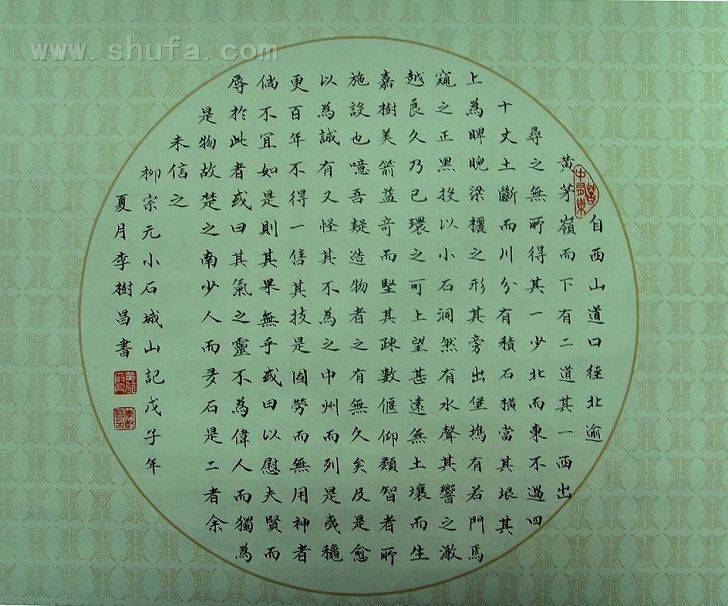 www.shufa.com
自西山道口徑北逾
黃茅嶺而下有二道其一西出
尋之無所得其一少北而東不過四
十丈土斷而川分有積石橫當其垠其
上為睥睨梁欐之形其旁出堡塢有若門焉
窺之正黑投以小石洞然有水聲其響之激
越良久乃已環之可上望甚遠無土壤而生
嘉樹美箭益奇而堅其疎數偃仰類智者所
施設也噫吾疑造物者之有無久矣及是愈
以為誠有又怪其不為之中州而列是夷
更百年不得一售其技是固勞而無用神者
倘不宜如是則其果無乎或曰以慰夫賢而
辱於此者或曰其氣之靈不為偉人而獨為
是物故楚之南少人而多石是二者余
未信之
柳宗元小石城山記戊子年
夏月李樹昌書